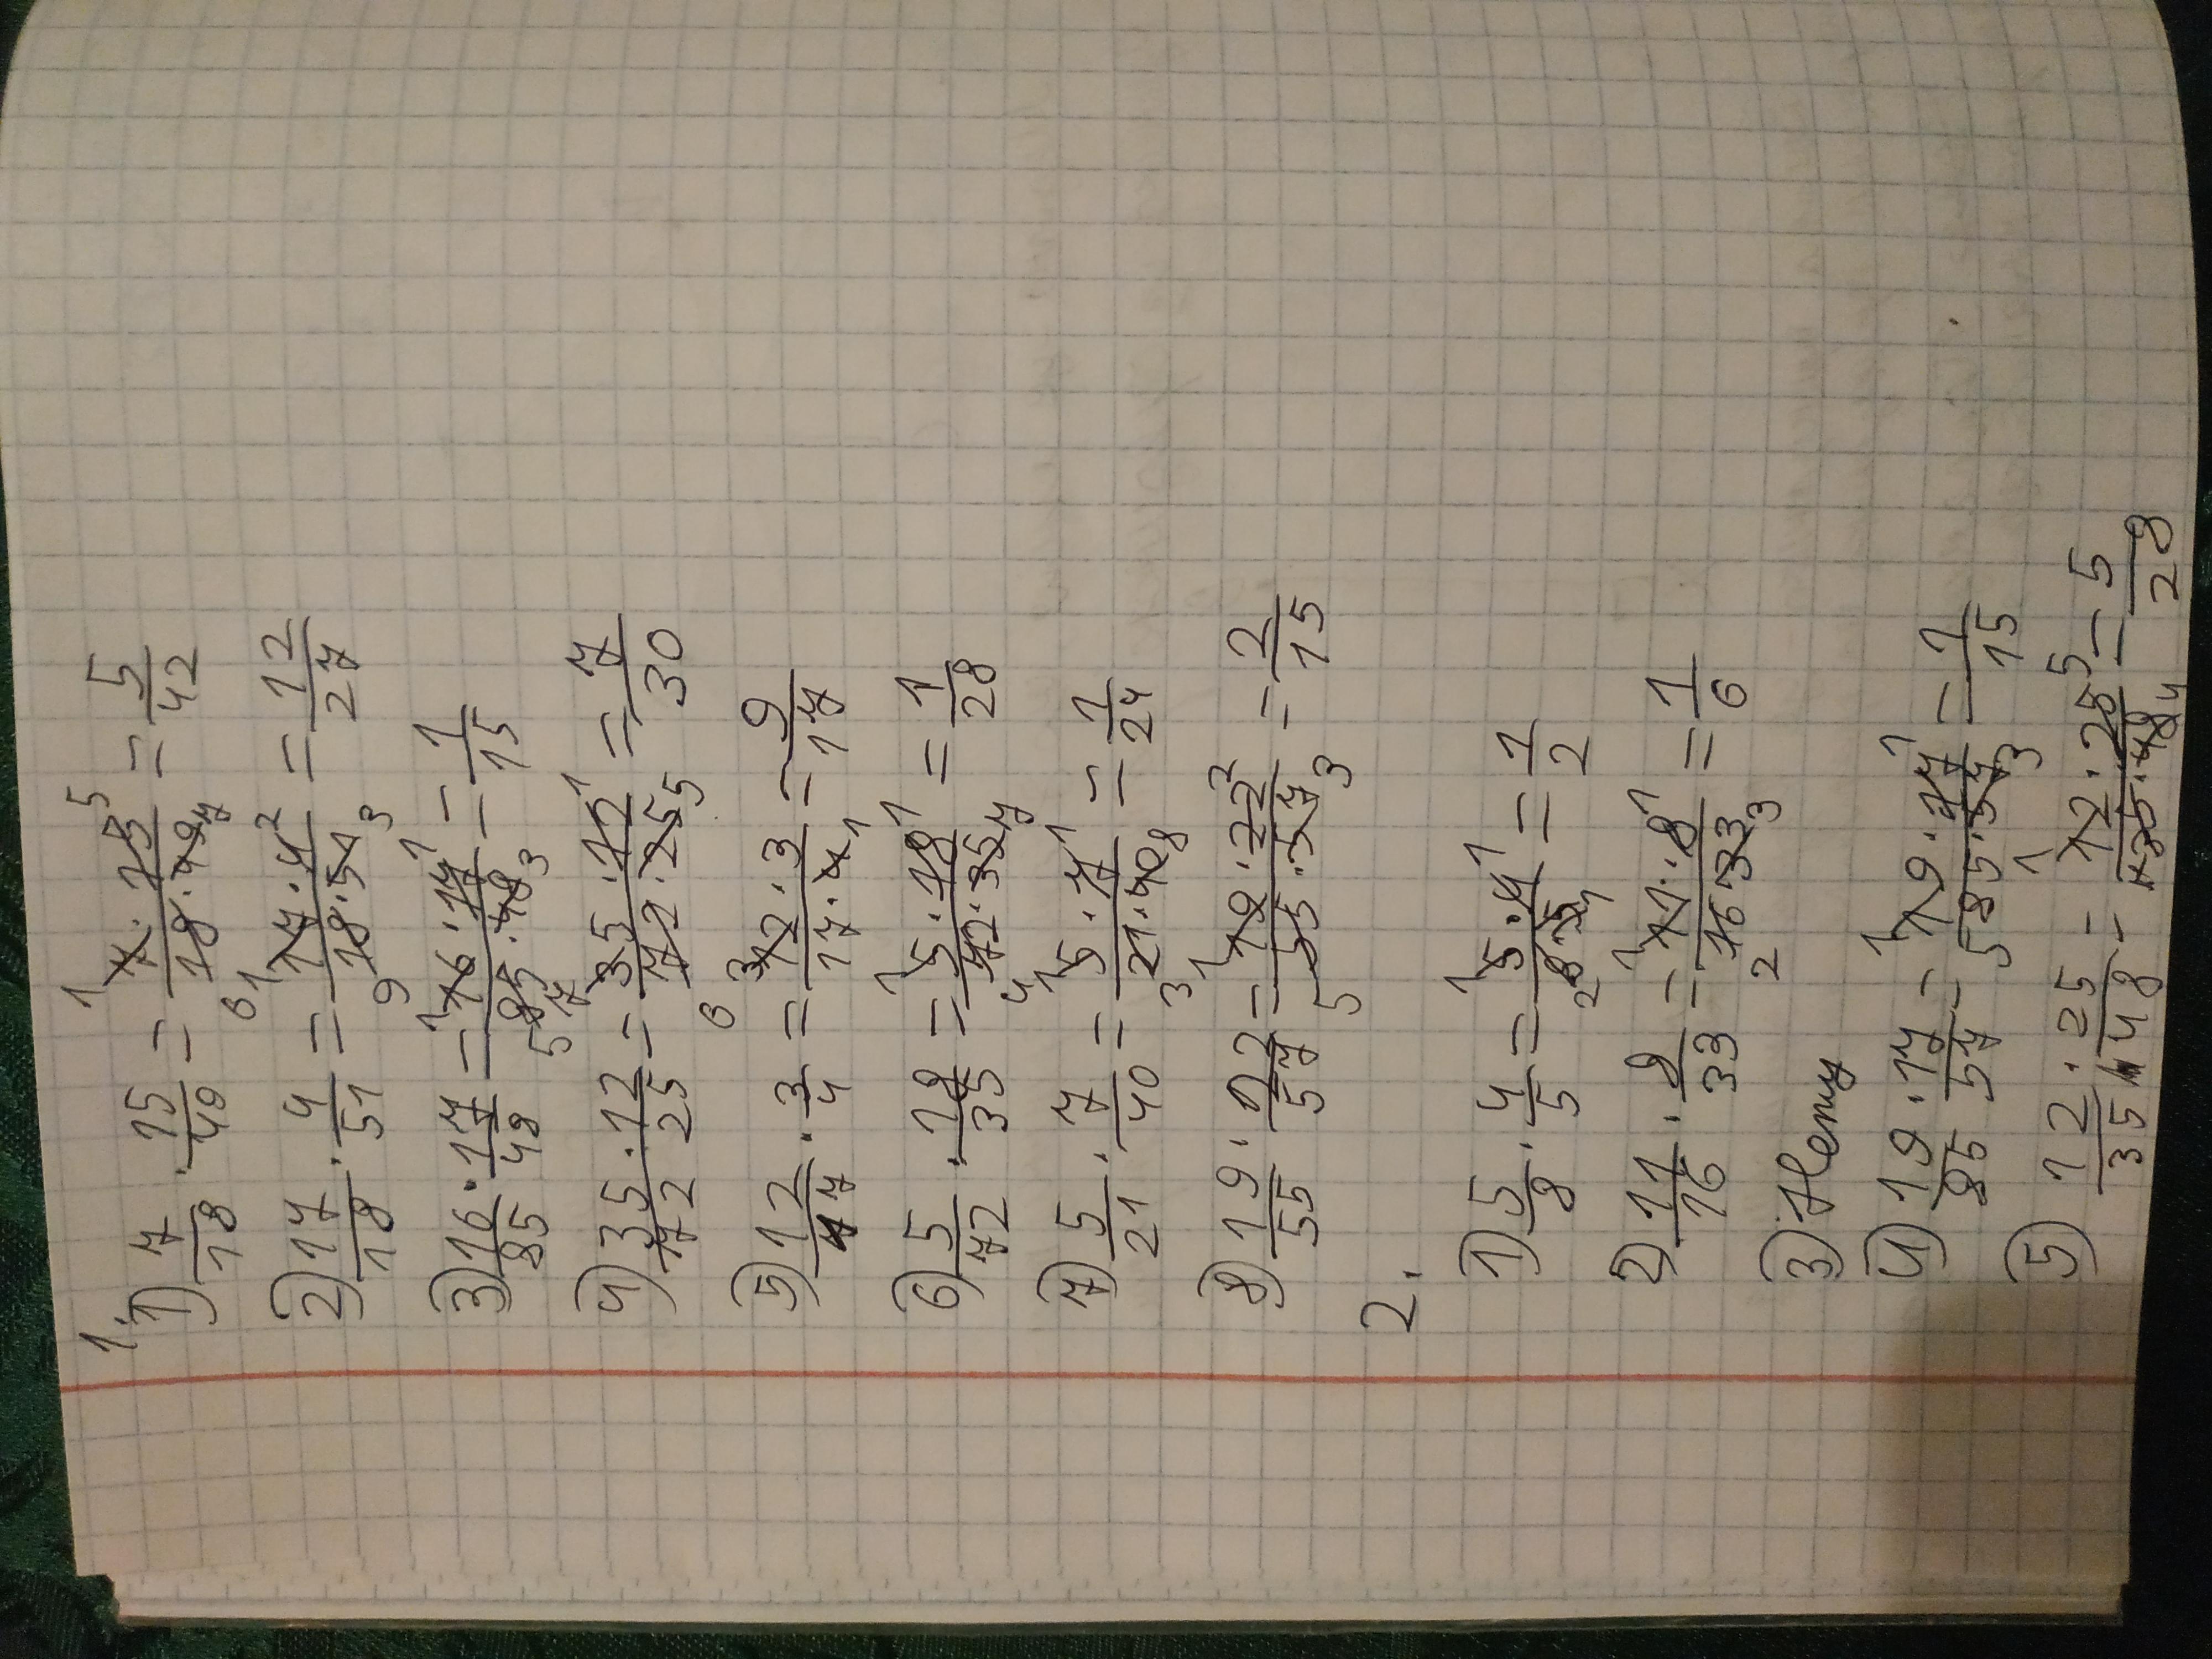 1.
1) 7/18 · 15/49 = 7·15/18·49 = 5/42
2) 17/18 · 4/51 = 17·4/18·51 = 12/27
3) 16/85 · 17/48 = 16·17/85·48 = 1/15
4) 35/72 · 12/25 = 35·12/72·25 = 7/30
5) 12/17 · 3/4 = 12·3/17·4 = 9/17
6) 5/72 · 18/35 = 5·18/72·35 = 1/28
7) 5/21 · 7/40 = 5·7/21·40 = 1/24
8) 19/55 · 22/57 = 19·22/55·57 = 2/15
2.
1) 5/8 · 4/5 = 5·4/8·5 = 1/2
2) 11/16 · 8/33 = 11·8/16·33 = 1/6
3) Нету
4) 19/85 · 17/57 = 19·17/85·57 = 1/15
5) 12/35 · 25/48 = 12·25/35·48 = 5/28